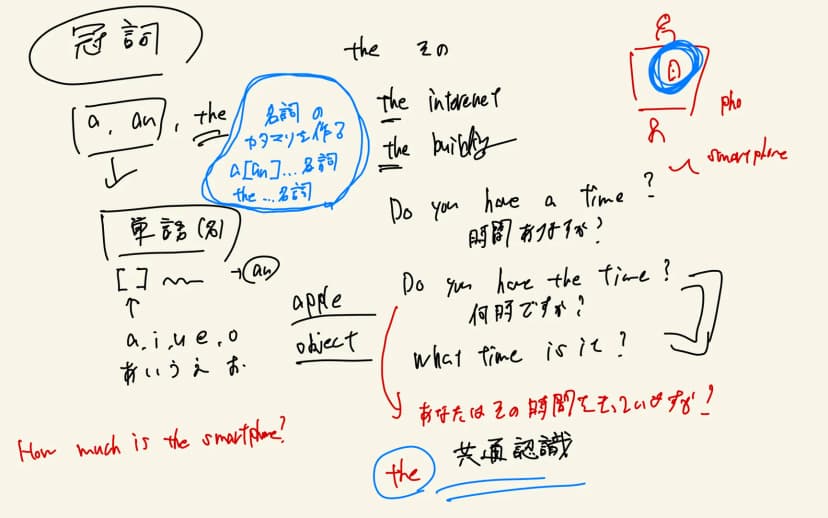 冠詞
a, an, the
名詞の
カタマリを作る
a[an]...名詞
the...名詞
単語(名)
[ ] → an
a, i, u, e, o
あいうえお
apple
object
How much is the smartphone?
the その
the interenet
the building
Do you have a time?
時間ありますか?
Do you have the time?
何時ですか?
What time is it?
あなたはその時間をもっていますか?
the 共通認識
pho
smartphone